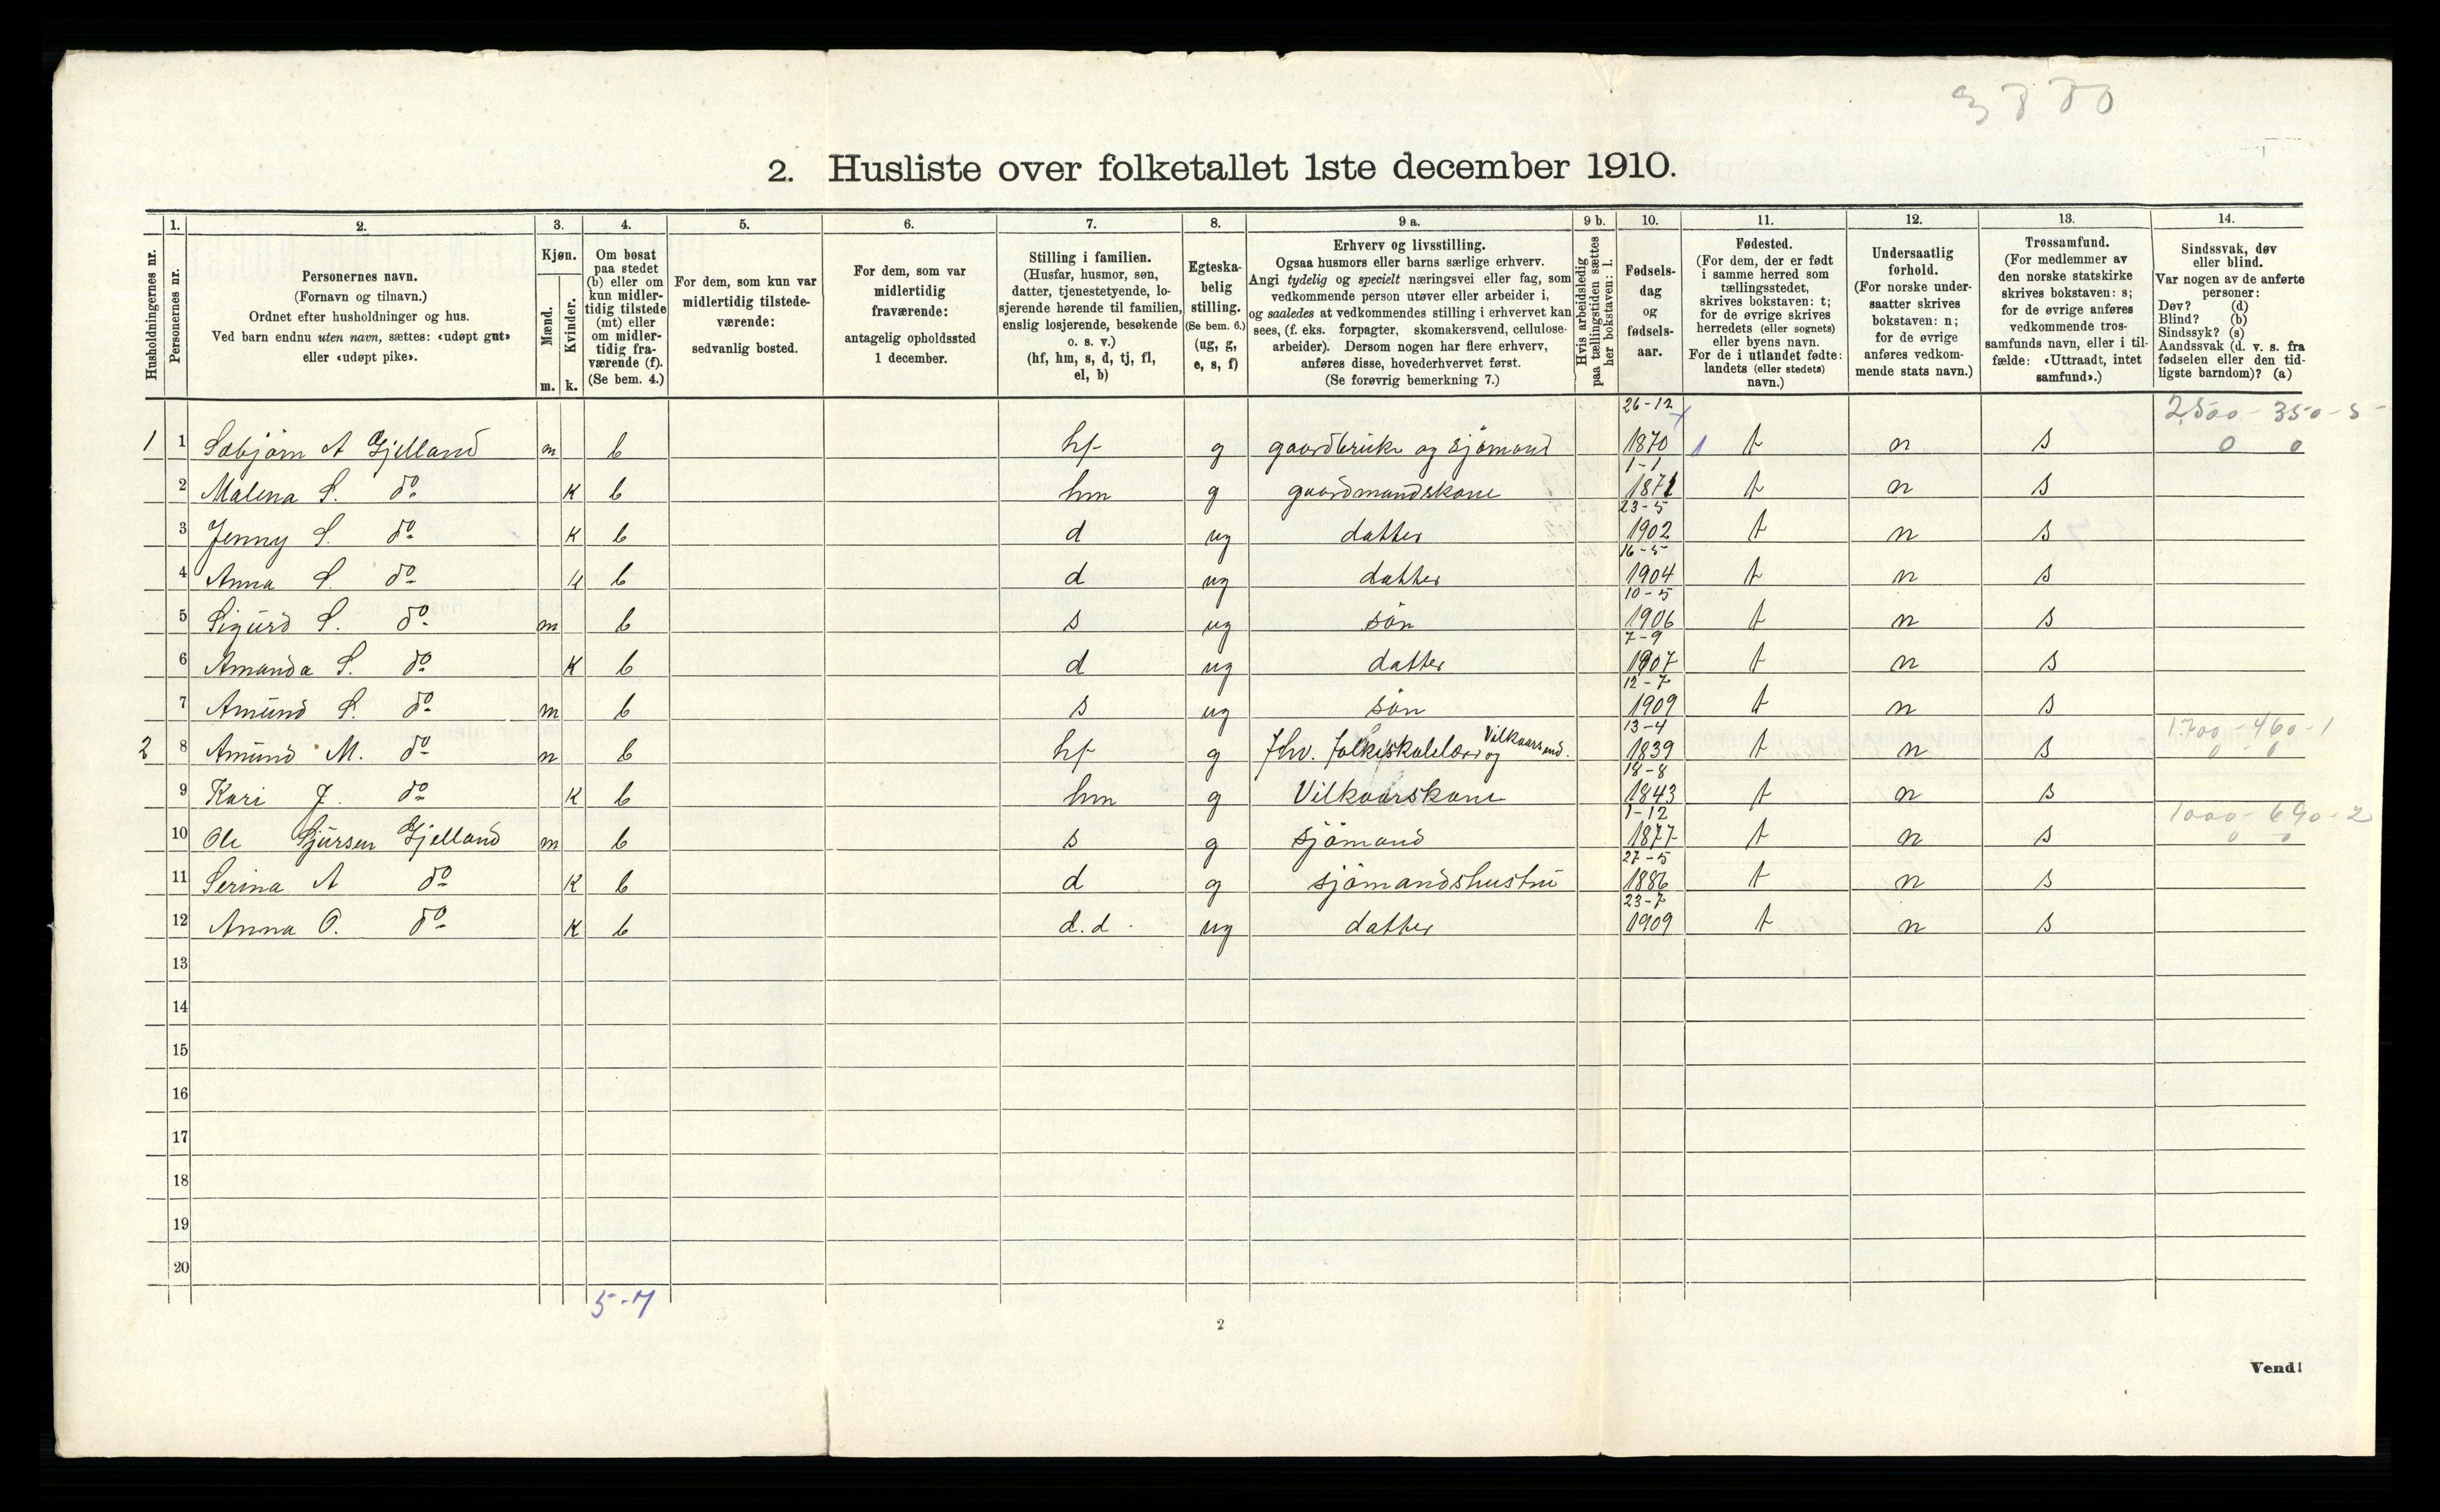 3880
2. Husliste over folketallet 1ste december 1910.
Husholdningernes nr.
1.
Personernes nr.
2.
Personernes navn.
(Fornavn og tilnavn.)
Ordnet efter husholdninger og hus.
Ved barn endnu uten navn, sættes: «udøpt gut»
eller «udøpt pike».
3.
Kjøn.
Mænd.
m.
Kvinder.
k.
4.
Om bosat
paa stedet
(b) eller om
kun midler-
tidig tilstede
(mt) eller
om midler-
tidig fra-
værende (f).
(Se bem. 4.)
5.
For dem, som kun var
midlertidig tilstede-
værende:
sedvanlig bosted.
6.
For dem, som var
midlertidig
fraværende:
antagelig opholdssted
1 december.
7.
Stilling i familien.
(Husfar, husmor, søn,
datter, tjenestetyende, lo-
sjerende hørende til familien,
enslig losjerende, besøkende
o. s. v.)
(hf, hm, s, d, tj, fl,
el, b)
8.
Egteska-
belig
stilling.
(Se bem. 6.)
(ug, g,
e, s, f)
9 a.
Erhverv og livsstilling.
Ogsaa husmors eller barns særlige erhverv.
Angi tydelig og specielt næringsvei eller fag, som
vedkommende person utøver eller arbeider i,
og saaledes at vedkommendes stilling i erhvervet kan
sees, (f. eks. forpagter, skomakersvend, cellulose-
arbeider). Dersom nogen har flere erhverv,
anføres disse, hovederhvervet først.
(Se forøvrig bemerkning 7.)
9 b.
Hvis arbeidsledig
paa tællingstiden sættes
her bokstaven: l.
10.
Fødsels-
dag
og
fødsels-
aar.
11.
Fødested.
(For dem, der er født
i samme herred som
tællingsstedet,
skrives bokstaven: t;
for de øvrige skrives
herredets (eller sognets)
eller byens navn.
For de i utlandet fødte:
landets (eller stedets)
navn.)
12.
Undersaatlig
forhold.
(For norske under-
saatter skrives
bokstaven: n;
for de øvrige
anføres vedkom-
mende stats navn.)
13.
Trossamfund.
(For medlemmer av
den norske statskirke
skrives bokstaven: s;
for de øvrige anføres
vedkommende tros-
samfunds navn, eller i til-
fælde: «Uttraadt, intet
samfund».)
14.
Sindssvak, døv
eller blind.
Var nogen av de anførte
personer:
Døv? (d)
Blind? (b)
Sindssyk? (s)
Aandssvak (d. v. s. fra
fødselen eller den tid-
ligste barndom)? (a)
26-12 2500-350-5-
1 1 Sæbjørn A Gjelland m b hf g gaardbruker og sjømand 1870 t n s 0 0
1-1
2 Malena S. do k b hm g gaardmandskone 1871 t n s
23-5
3 Jenny S. do k b d ug datter 1902 t n s
16-5
4 Anna S. do k b d ug datter 1904 t n s
10-5
5 Sigurd S. do m b s ug søn 1906 t n s
7-9
6 Amanda S. do k b d ug datter 1907 t n s
12-7
7 Amund S. do m b s ug søn 1909 t n s
13-4 1700-460-1
2 8 Amund M. do m b hf g fhv. folkeskolelærer og Vilkaarsmd. 1839 t n s 0 0
18-8
9 Kari J. do k b hm g Vilkaarskone 1843 t n s
1-12 1000-690-2
10 Ole Sjursen Gjelland m b s g sjømand 1877 t n s 0 0
27-5
11 Serina A do k b d g sjømandshustru 1886 t n s
23-7
12 Anna O. do k b d.d. ug datter 1909 t n s
13
14
15
16
17
18
19
20
5-7
2
Vend!